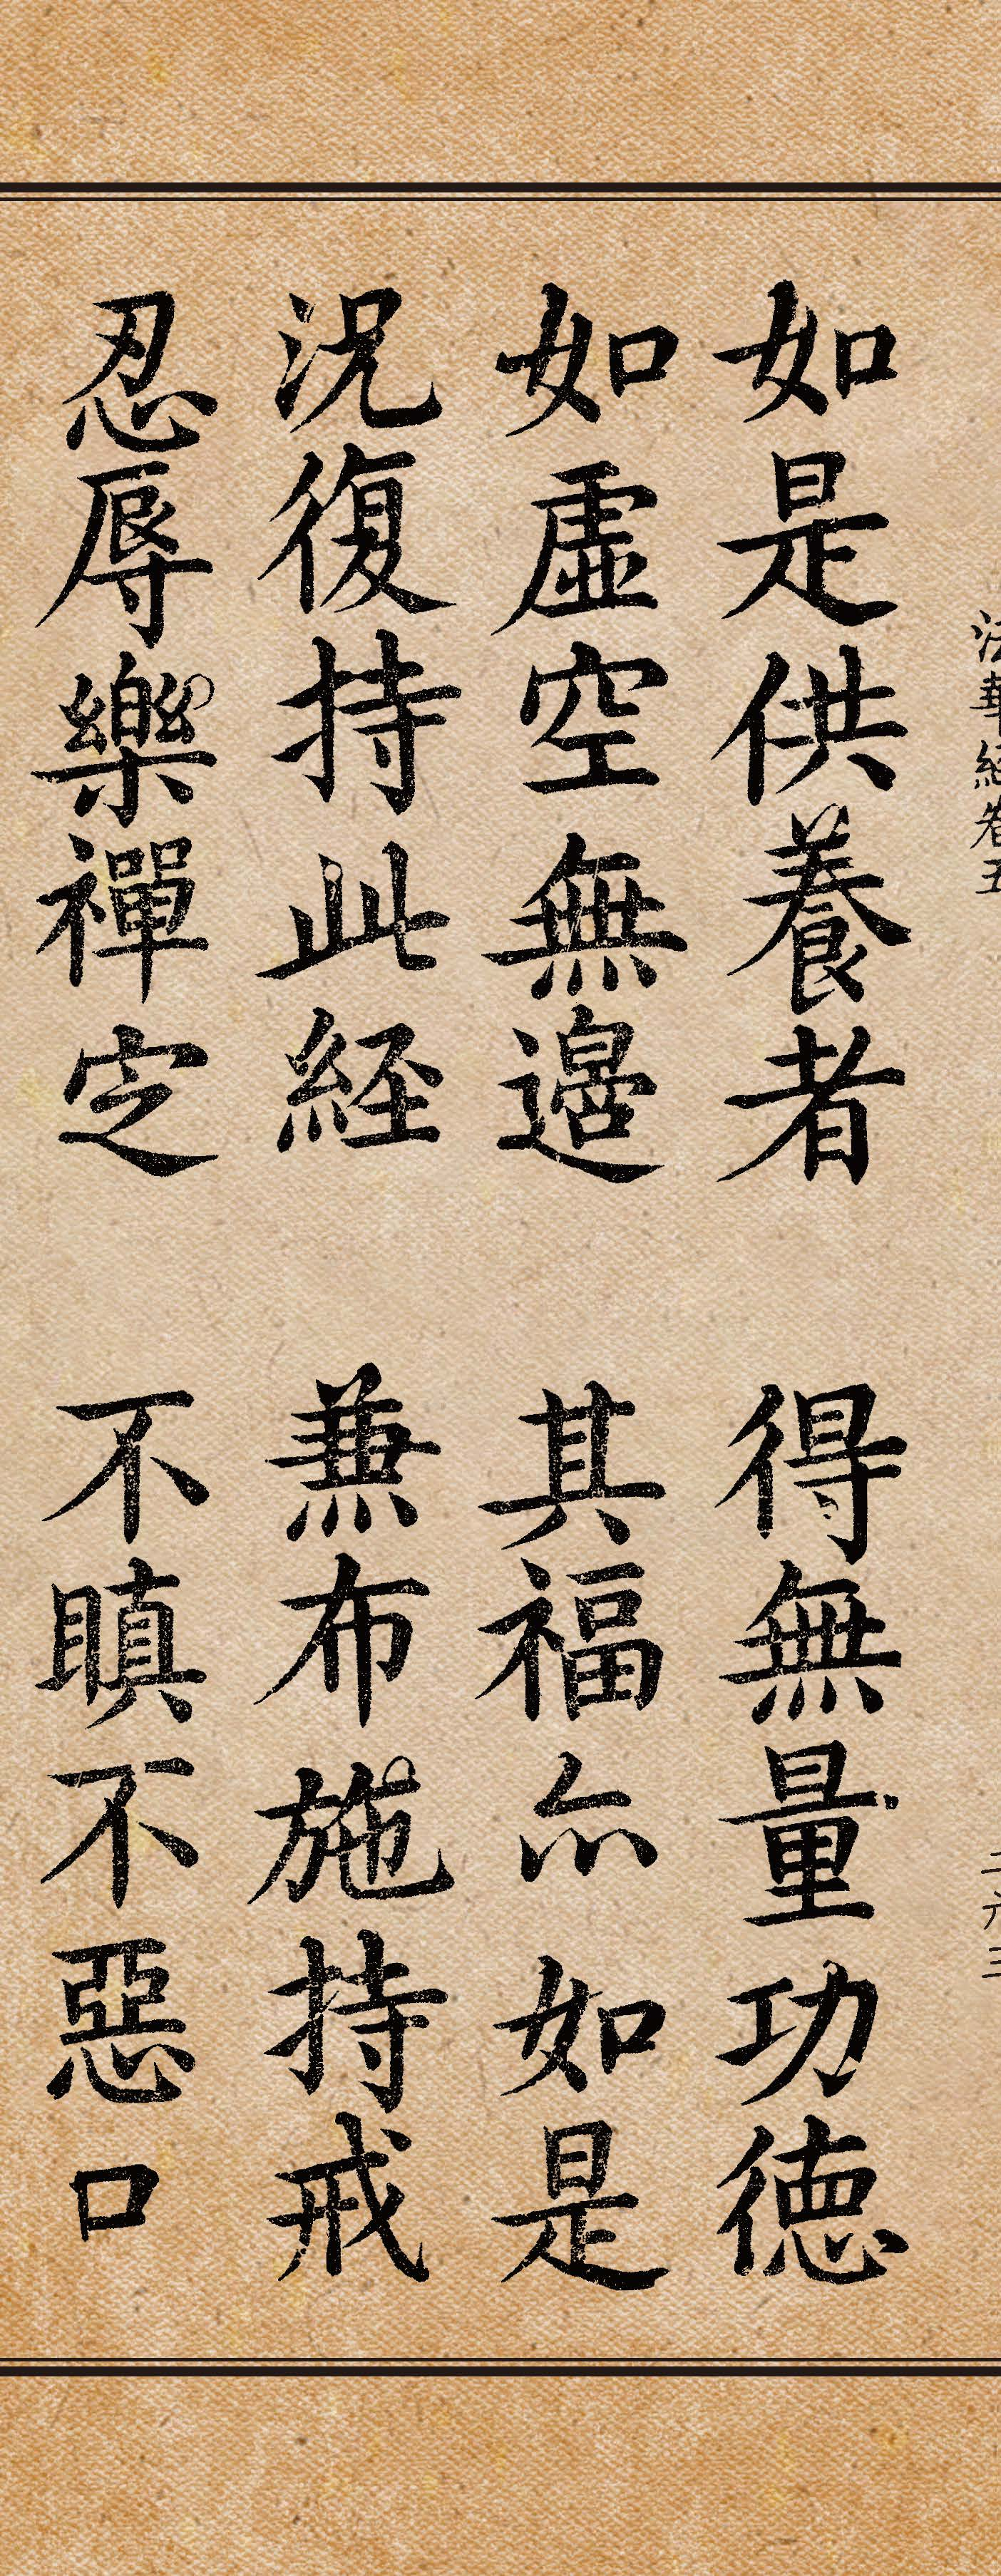 法華経巻五
如是供養者 得無量功徳
如虚空無邊 其福亦如是
況復持此経 兼布施持戒
忍辱樂禪定 不瞋不惡口